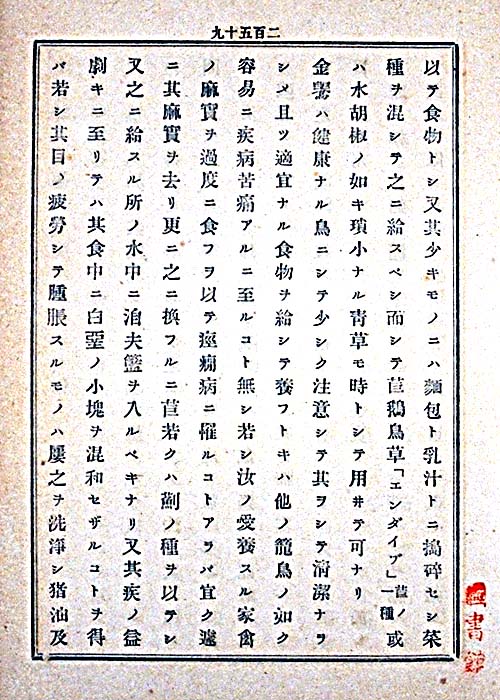 二百五十九
以テ食物トシ又其少キモノニハ麵包ト乳汁トニ搗碎セシ菜
種ヲ混シテ之ニ給スベシ而シテ苣鵝鳥草「エンダイブ」苣ノ一種或
ハ水胡椒ノ如キ瑣小ナル靑草モ時トシテ用井テ可ナリ
金翠ハ健康ナル鳥ニシテ少シク注意シテ其ヲシテ淸潔ナラ
シメ且ツ適宜ナル食物ヲ給シテ養フトキハ他ノ籠鳥ノ如ク
容易ニ疾病苦痛アルニ至ルコト無シ若シ汝ノ愛養スル家禽
ノ麻實ヲ過度ニ食フヲ以テ痙癇病ニ罹ルコトアラバ宜ク遽
ニ其麻實ヲ去リ更ニ之ニ換フルニ苣若クハ薊ノ種ヲ以テシ
又之ニ給スル所ノ水中ニ洎夫籃ヲ入ルベキナリ又其疾ノ益
劇キニ至リテハ其食中ニ白堊ノ小塊ヲ混和セザルコトヲ得
バ若シ其目ノ疲勞シテ腫脹スルモノハ屢之ヲ洗淨シ猪油及
書館